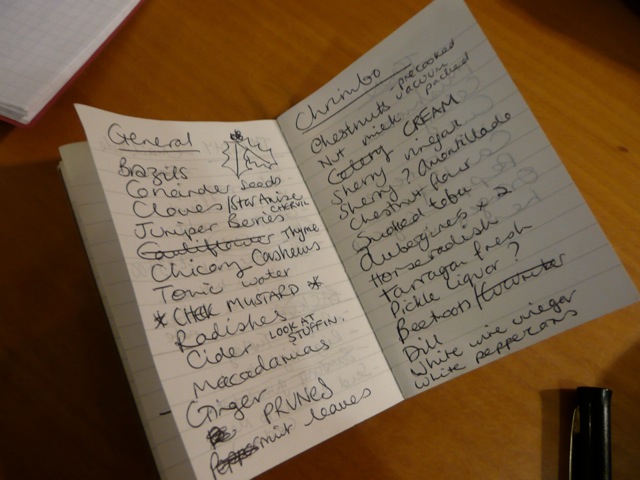 General
Brazils
Coriander Seeds
Cloves / Star Anise
CHERVIL
Juniper Berries
Cauliflower Thyme
Chicory Cashews
Tonic water
* CHEK MUSTARD *
Radishes
Cider LOOK AT STUFFIN.
Macadamias
Ginger
PRUNES
mint leaves
Chrimbo
Chestnuts - precooked
vacuum
packed
Nut milk
CREAM
Sherry vinegar
Sherry ? Amontillado
Chestnut flour
Smoked tofu
Aubergines x 2
Horseradish
Tarragon fresh
Pickle liquor ?
Beetroots / Cucumber
Dill
White wine vinegar
White peppercorns